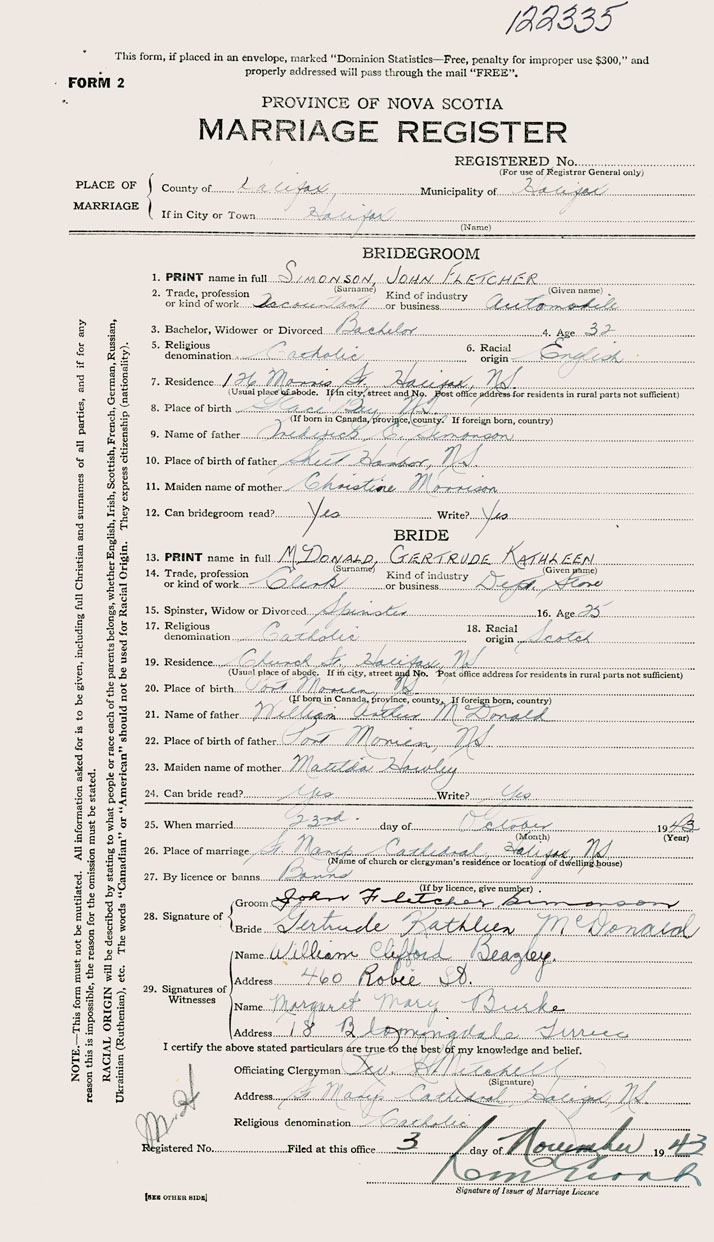 122335
This form, if placed in an envelope, marked "Dominion Statistics—Free, penalty for improper use $300," and
properly addressed will pass through the mail "FREE".
FORM 2
PROVINCE OF NOVA SCOTIA
MARRIAGE REGISTER
REGISTERED No.
(For use of Registrar General only)
PLACE OF MARRIAGE
County of Halifax Municipality of Halifax
If in City or Town Halifax
(Name)
BRIDEGROOM
1. PRINT name in full SIMONSON, JOHN FLETCHER
(Surname) (Given name)
2. Trade, profession or kind of work Accountant Kind of industry or business Automobile
3. Bachelor, Widower or Divorced Bachelor 4. Age 32
5. Religious denomination Catholic 6. Racial origin English
7. Residence 126 Morris St. Halifax, N.S.
(Usual place of abode. If in city, street and No. Post office address for residents in rural parts not sufficient)
8. Place of birth Glace Bay, N.S.
(If born in Canada, province, county. If foreign born, country)
9. Name of father Frederick E. Simonson
10. Place of birth of father Sheet Harbor, N.S.
11. Maiden name of mother Christine Morrison
12. Can bridegroom read? Yes Write? Yes
BRIDE
13. PRINT name in full McDONALD, GERTRUDE KATHLEEN
(Surname) (Given name)
14. Trade, profession or kind of work Clerk Kind of industry or business Dept. Store
15. Spinster, Widow or Divorced Spinster 16. Age 25
17. Religious denomination Catholic 18. Racial origin Scotch
19. Residence Church St. Halifax, NS
(Usual place of abode. If in city, street and No. Post office address for residents in rural parts not sufficient)
20. Place of birth Port Morien, NS
(If born in Canada, province, county. If foreign born, country)
21. Name of father William Arthur McDonald
22. Place of birth of father Port Morien, NS
23. Maiden name of mother Matilda Hawley
24. Can bride read? Yes Write? Yes
25. When married 23rd. day of October 1943
(Month) (Year)
26. Place of marriage St Marys Cathedral, Halifax, NS
(Name of church or clergyman's residence or location of dwelling house)
27. By licence or banns Banns
(If by licence, give number)
28. Signature of
Groom John Fletcher Simonson
Bride Gertrude Kathleen McDonald
29. Signatures of Witnesses
Name William Clifford Beazley.
Address 460 Robie St.
Name Margaret Mary Burke
Address 18 Bloomingdale Terrace
I certify the above stated particulars are true to the best of my knowledge and belief.
Officiating Clergyman Mitchell
(Signature)
Address St Marys Cathedral Halifax, NS.
Religious denomination Catholic
Registered No. Filed at this office 3 day of November 1943
Signature of Issuer of Marriage Licence
[SEE OTHER SIDE]
NOTE.—This form must not be mutilated. All information asked for is to be given, including full Christian and surnames of all parties, and if for any
reason this is impossible, the reason for the omission must be stated.
RACIAL ORIGIN will be described by stating to what people or race each of the parents belongs, whether English, Irish, Scottish, French, German, Russian,
Ukrainian (Ruthenian), etc. The words "Canadian" or "American" should not be used for Racial Origin. They express citizenship (nationality).